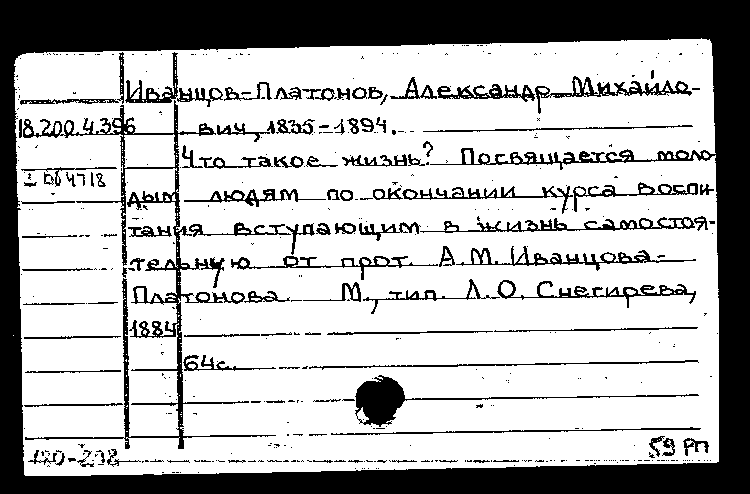 Иванцов-Платонов, Александр Михайло-
18.200.4.396 вич, 1835-1894.
Что такое жизнь? Посвящается моло
дым людям по окончании курса воспи
тания вступающим в жизнь самостоя-
тельную от прот. А.М. Иванцова-
Платонова. М., тип. Л.О. Снегирева,
1884
64с.
180-298
59 РП